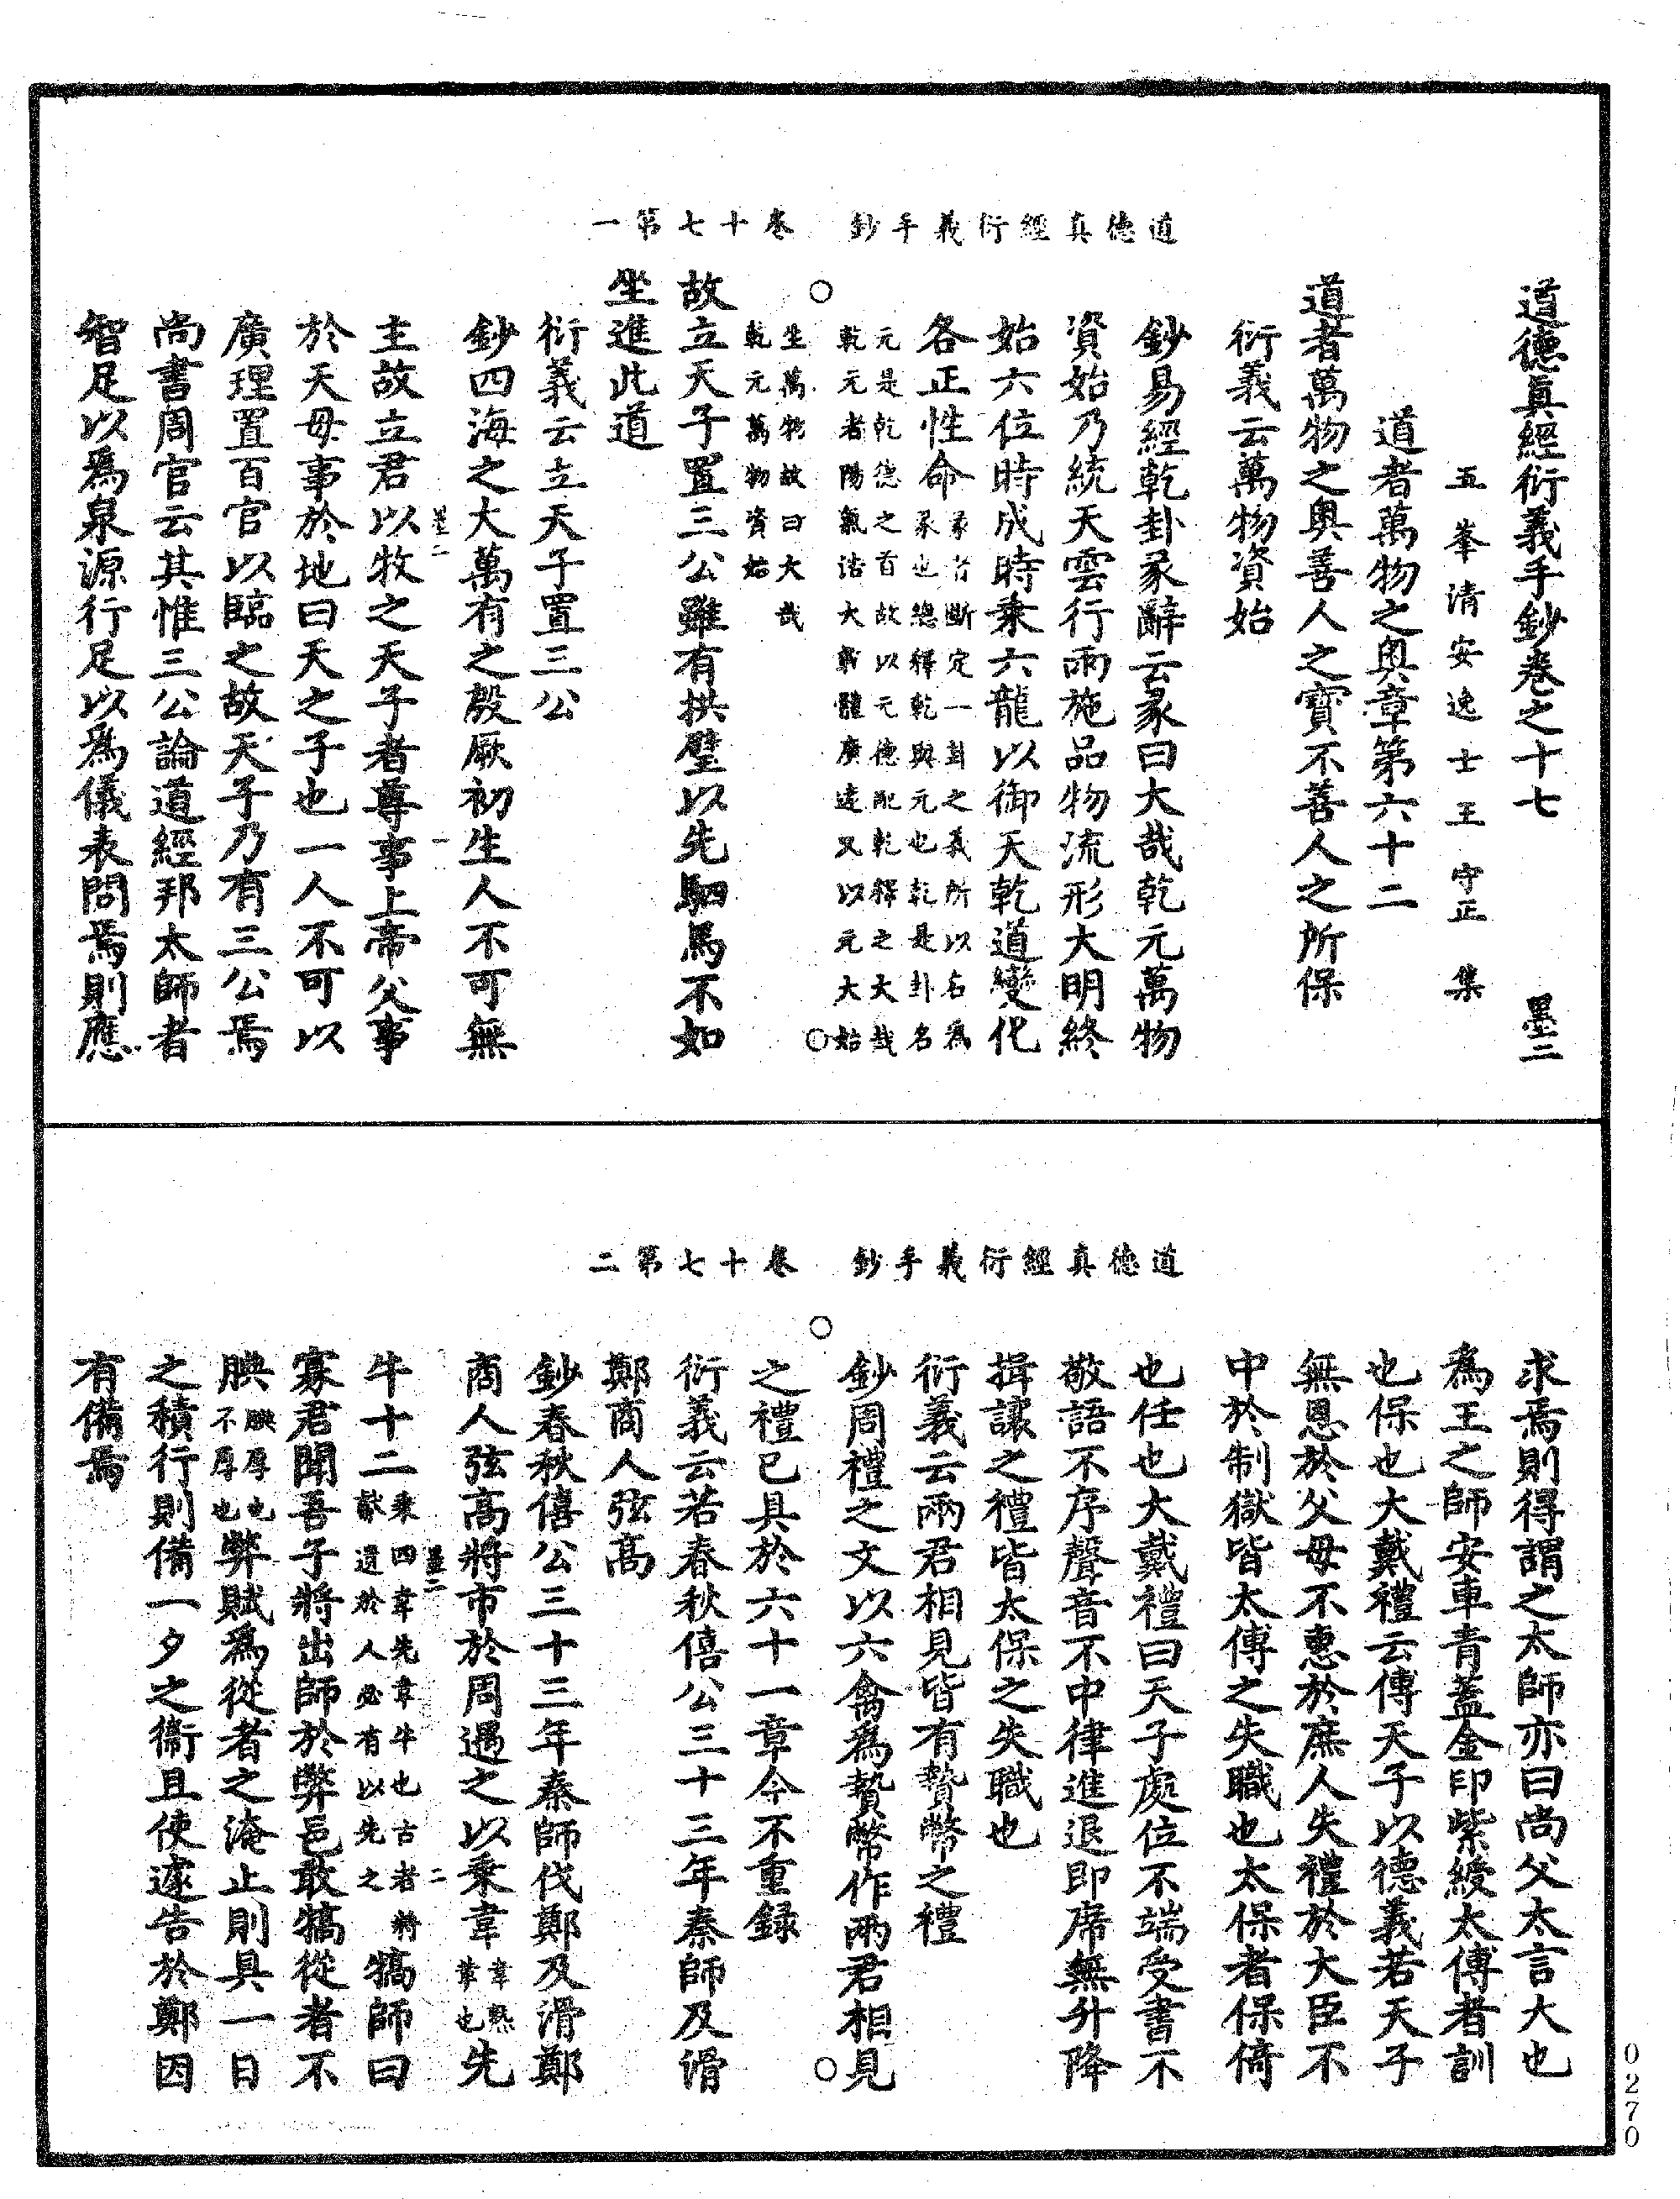 道德真經衍義手鈔　卷十七第一
道德眞經衍義手鈔卷之十七　墨二
五峯清安逸士王守正　集
道者萬物之奧章第六十二
道者萬物之奧善人之寶不善人之所保
衍義云萬物資始
鈔易經乾卦彖辭云彖曰大哉乾元萬物
資始乃統天雲行雨施品物流形大明終
始六位時成時乘六龍以御天乾道變化
各正性命彖者斷定一卦之義所以名爲
彖也總釋乾與元也乾是卦名
元是乾德之首故以元德配乾釋之大哉
乾元者陽氣浩大乾體廣遠又以元大始
生萬物故曰大哉
乾元萬物資始
故立天子置三公雖有拱璧以先駟馬不如
坐進此道
衍義云立天子置三公
鈔四海之大萬有之殷厥初生人不可無
主故立君以牧之天子者尊事上帝父事
墨二　一
於天母事於地曰天之子也一人不可以
廣理置百官以臨之故天子乃有三公焉
尚書周官云其惟三公論道經邦太師者
智足以爲泉源行足以爲儀表問焉則應
道德真經衍義手鈔　卷十七第二
求焉則得謂之太師亦曰尚父太言大也
爲王之師安車青蓋金印紫綬太傅者訓
也保也大戴禮云傅天子以德義若天子
無恩於父母不惠於庶人失禮於大臣不
中於制獄皆太傅之失職也太保者保倚
也任也大戴禮曰天子處位不端受書不
敬語不序聲音不中律進退即席無升降
揖讓之禮皆太保之失職也
衍義云兩君相見皆有贄幣之禮
鈔周禮之文以六禽爲贄幣作兩君相見
之禮已具於六十一章今不重録
衍義云若春秋僖公三十三年秦師及滑
鄭商人弦高
鈔春秋僖公三十三年秦師伐鄭及滑鄭
商人弦高將市於周遇之以乘韋韋熟
革也先
墨二　二
牛十二乘四韋先韋牛也古者將
獻遺於人必有以先之犒師曰
寡君聞吾子將出師於弊邑敢犒從者不
腆腆厚也
不厚也弊賦爲從者之淹止則具一日
之積行則備一夕之衞且使遽告於鄭因
有備焉
0270